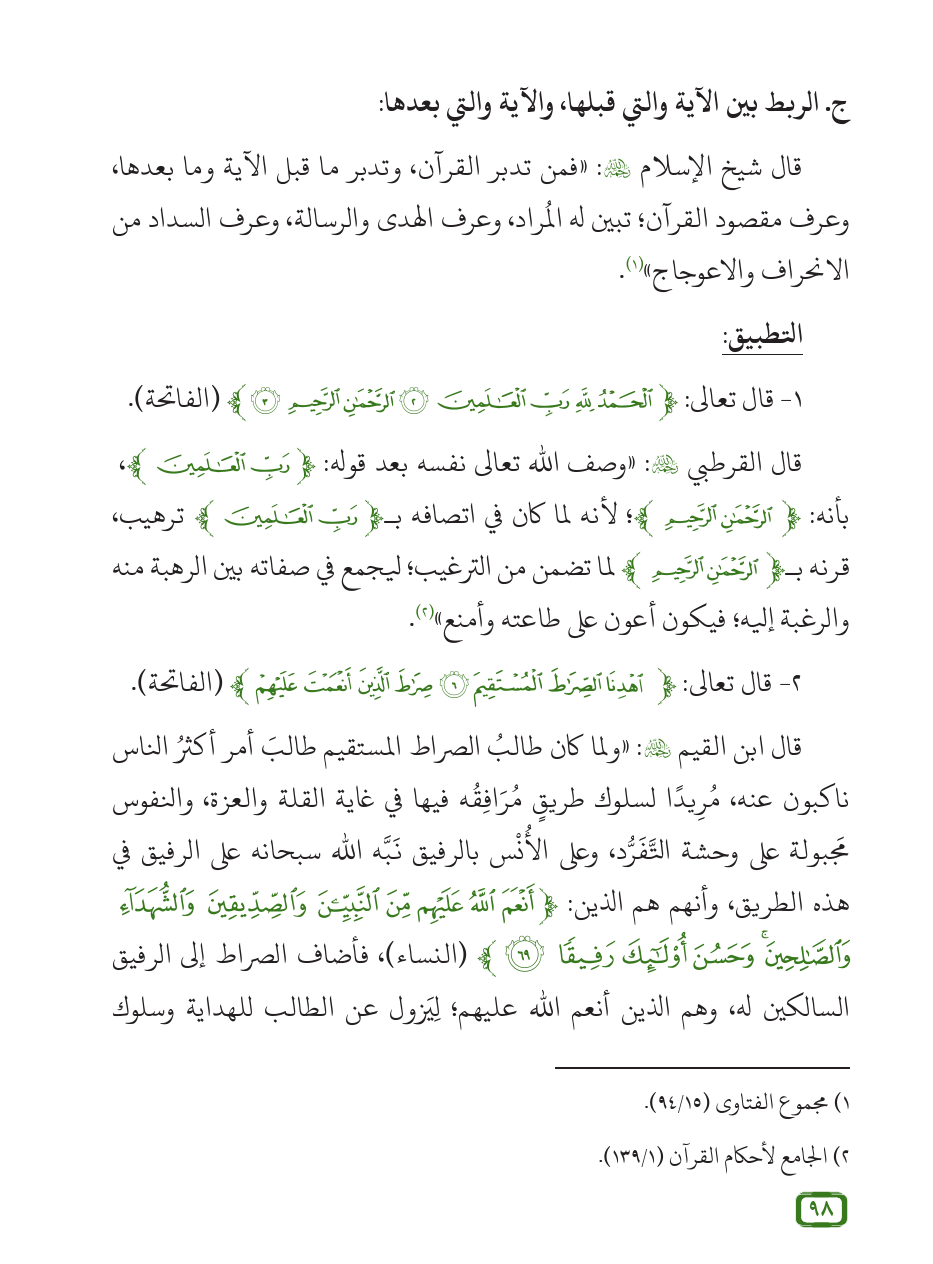 ج. الربط بين الآية والتي قبلها، والآية والتي بعدها:
قال شيخ الإسلام ﵀: «فمن تدبر القرآن، وتدبر ما قبل الآية وما بعدها،
وعرف مقصود القرآن؛ تبين له المُراد، وعرف الهدى والرسالة، وعرف السداد من
الانحراف والاعوجاج»(١).
التطبيق:
١- قال تعالى: ﴿ ٱلۡحَمۡدُ لِلَّهِ رَبِّ ٱلۡعَٰلَمِينَ ٢ ٱلرَّحۡمَٰنِ ٱلرَّحِيمِ ٣ ﴾ (الفاتحة).
قال القرطبي ﵀: «وصف الله تعالى نفسه بعد قوله: ﴿ رَبِّ ٱلۡعَٰلَمِينَ ﴾،
بأنه: ﴿ ٱلرَّحۡمَٰنِ ٱلرَّحِيمِ ﴾؛ لأنه لما كان في اتصافه بـ﴿ رَبِّ ٱلۡعَٰلَمِينَ ﴾ ترهيب،
قرنه بـ﴿ ٱلرَّحۡمَٰنِ ٱلرَّحِيمِ ﴾ لما تضمن من الترغيب؛ ليجمع في صفاته بين الرهبة منه
والرغبة إليه؛ فيكون أعون على طاعته وأمنع»(٢).
٢- قال تعالى: ﴿ ٱهۡدِنَا ٱلصِّرَٰطَ ٱلۡمُسۡتَقِيمَ ٦ صِرَٰطَ ٱلَّذِينَ أَنۡعَمۡتَ عَلَيۡهِمۡ ﴾ (الفاتحة).
قال ابن القيم ﵀: «ولما كان طالبُ الصراط المستقيم طالبَ أمر أكثرُ الناس
ناكبون عنه، مُرِيدًا لسلوك طريقٍ مُرَافِقُه فيها في غاية القلة والعزة، والنفوس
مَجبولة على وحشة التَّفَرُّد، وعلى الأُنْس بالرفيق نَبَّه الله سبحانه على الرفيق في
هذه الطريق، وأنهم هم الذين: ﴿ أَنۡعَمَ ٱللَّهُ عَلَيۡهِم مِّنَ ٱلنَّبِيِّـۧنَ وَٱلصِّدِّيقِينَ وَٱلشُّهَدَآءِ
وَٱلصَّٰلِحِينَۚ وَحَسُنَ أُوْلَٰٓئِكَ رَفِيقٗا ٦٩ ﴾ (النساء)، فأضاف الصراط إلى الرفيق
السالكين له، وهم الذين أنعم الله عليهم؛ لِيَزول عن الطالب للهداية وسلوك
١) مجموع الفتاوى (٩٤/١٥).
٢) الجامع لأحكام القرآن (١٣٩/١).
٩٨